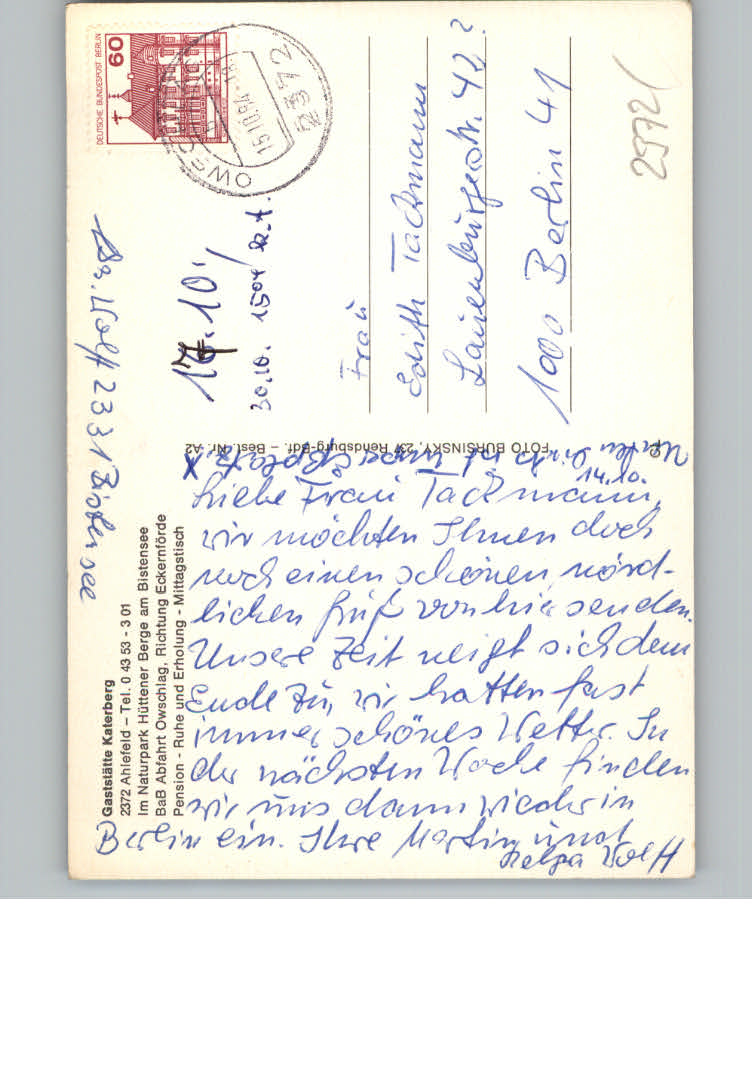 Gaststätte Katerberg
2372 Ahlefeld – Tel. 0 43 53 - 3 01
Im Naturpark Hüttener Berge am Bistensee
BaB Abfahrt Owschlag, Richtung Eckernförde
Pension - Ruhe und Erholung - Mittagstisch
X Unten links ist unser Eßplatz.
14.10.
Liebe Frau Tackmann,
wir möchten Ihnen doch
noch einen schönen nörd-
lichen Gruß von hier senden.
Unsere Zeit neigt sich dem
Ende zu, wir hatten fast
immer schönes Wetter. In
der nächsten Woche finden
wir uns dann wieder in
Berlin ein. Ihre Martin und
Helga Wolff
FOTO BURSINSKY, 237 Rendsburg-Bdf. – Best. Nr. A2
Wolff 2331 Bistensee
DEUTSCHE BUNDESPOST BERLIN
60
15.10.84
2372
17.10.
30.10. 1504
Frau
Edith Tackmann
Lauenburgerstr. 42?
1000 Berlin 41
2372/